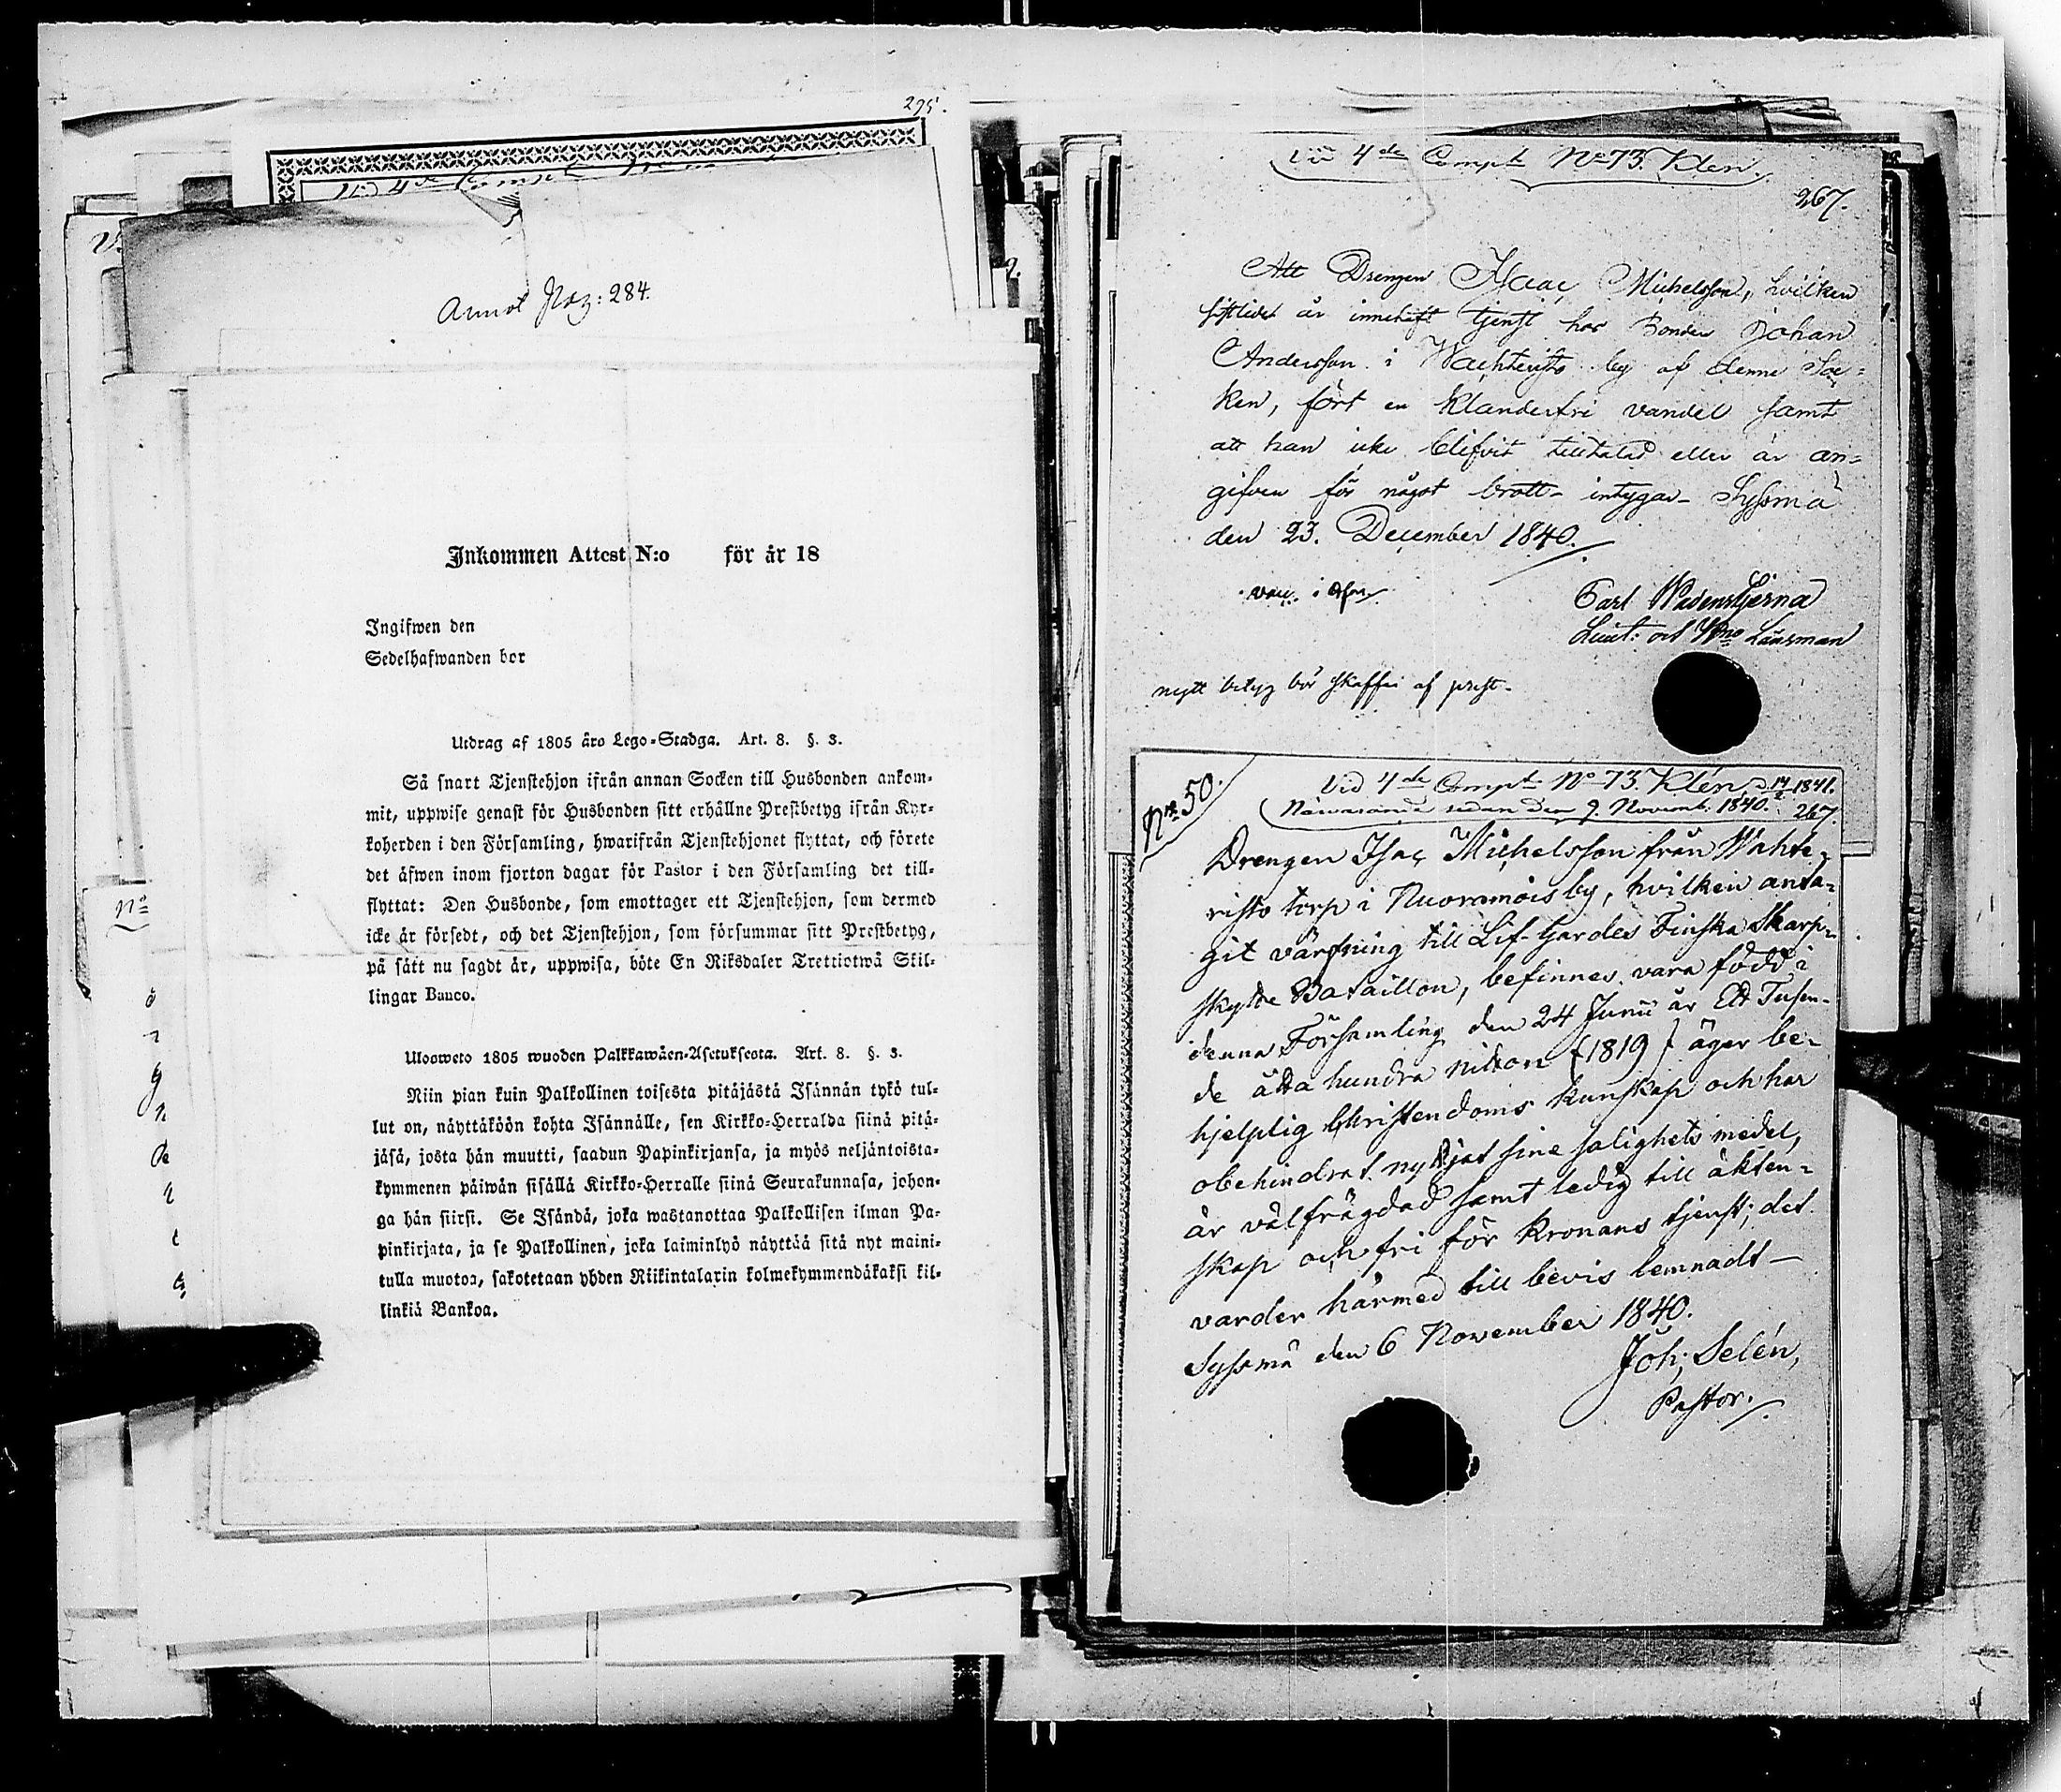 295.
Annot Pag: 284.
Inkommen Attest N:o för år 18
Ingifwen den
Sedelhafwanden bor
Utdrag af 1805 års Lego-Stadga. Art. 8. §. 3.
Så snart Tjenstehjon ifrån annan Socken till Husbonden ankom-
mit, uppwise genast för Husbonden sitt erhållne Prestbetyg ifrån Kyr-
koherden i den Församling, hwarifrån Tjenstehjonet flyttat, och förete
det äfwen inom fjorton dagar för Pastor i den Församling det till-
flyttat: Den Husbonde, som emottager ett Tjenstehjon, som dermed
icke är försedt, och det Tjenstehjon, som försummar sitt Prestbetyg,
på sätt nu sagdt är, uppwisa, böte En Riksdaler Trettiotwå Skil-
lingar Banco.
Ulosweto 1805 wuoden Palkkawäen-Asetuksesta. Art. 8. §. 3.
Niin pian kuin Palkollinen toisesta pitäjästä Isännän tykö tul-
lut on, näyttäköön kohta Isännälle, sen Kirkko-Herralda siinä pitä-
jäsä, josta hän muutti, saadun Papinkirjansa, ja myös neljäntoista-
kymmenen päiwän sisällä Kirkko-Herralle siinä Seurakunnasa, johon-
ga hän siirsi. Se Isändä, joka wastanottaa Palkollisen ilman Pa-
pinkirjata, ja se Palkollinen, joka laiminlyö näyttää sitä nyt maini-
tulla muotoa, sakotetaan yhden Riikintalarin kolmekymmendäkaksi kil-
linkiä Bankoa.
Vid 4de Compt No 73. Klen.
267.
Att Drengen Isaac Michelsson, hvilken
sistlidet år innehaft tjenst hos Bonden Johan
Andersson i Wachteristo by af denne Soc=
ken, fört en klanderfri vandel samt
att han icke blifvit tilltalad eller är an=
gifven för något brott- intygar- Syssmä
den 23. December 1840.
Carl Wadenstjerna
Lieut: och Länsman
nytt betyg bör skaffas af prest.
No 50.
Vid 4de Compt No 73. Klén 1841.
Närvarande sedan den 9. Novemb. 1840. 267.
Drengen Isac Michelsson från Wahte=
risto torp i Nuoramois by, hvilken anta=
git värfning till Lif-Gardes Finska Skarp=
skytte Bataillon, befinnes vara född i
denna Församling den 24 Junii år Ett Tusen-
de åtta hundra nitton (1819) äger be-
hjelplig Christendoms kunskap och har
obehindrat nyttjat sine salighets medel,
är välfrägdad samt ledig till äkten=
skap och fri för Kronans tjenst; det
varder härmed till bevis lemnadt-
Syssmä den 6 November 1840.
Joh; Selén,
Pastor.